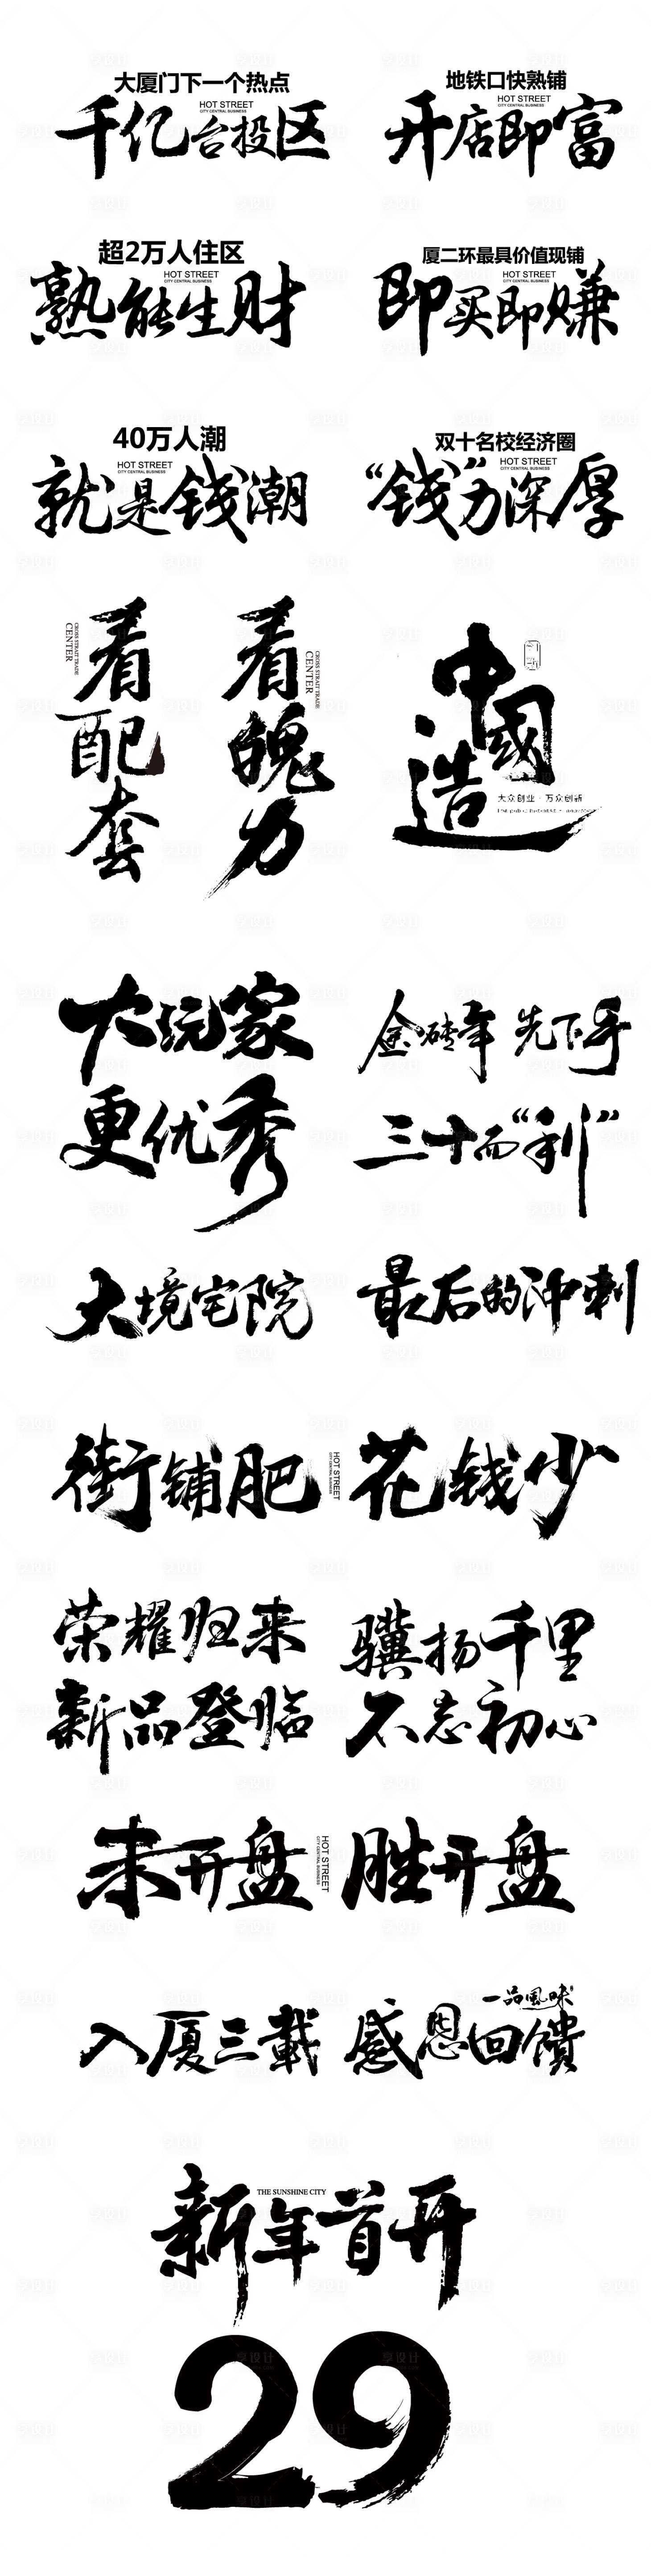 大厦门下一个热点
HOT STREET
CITY CENTRAL BUSINESS
千亿台投区
地铁口快熟铺
HOT STREET
CITY CENTRAL BUSINESS
开店即富
超2万人住区
HOT STREET
CITY CENTRAL BUSINESS
熟能生财
厦二环最具价值现铺
HOT STREET
CITY CENTRAL BUSINESS
即买即赚
40万人潮
HOT STREET
CITY CENTRAL BUSINESS
就是钱潮
双十名校经济圈
HOT STREET
CITY CENTRAL BUSINESS
“钱”力深厚
看配套
CROSS STRAIT TRADE
CENTER
看魄力
CROSS STRAIT TRADE
CENTER
中國造
大众创业·万众创新
大玩家
更优秀
金砖年 先下手
三十而“利”
大境宅院
最后的冲刺
街铺肥
HOT STREET
CITY CENTRAL BUSINESS
花钱少
荣耀归来
新品登临
骥扬千里
不忘初心
未开盘
HOT STREET
CITY CENTRAL BUSINESS
胜开盘
入厦三載
一品風味
感恩回饋
THE SUNSHINE CITY
新年首开
29
享设计